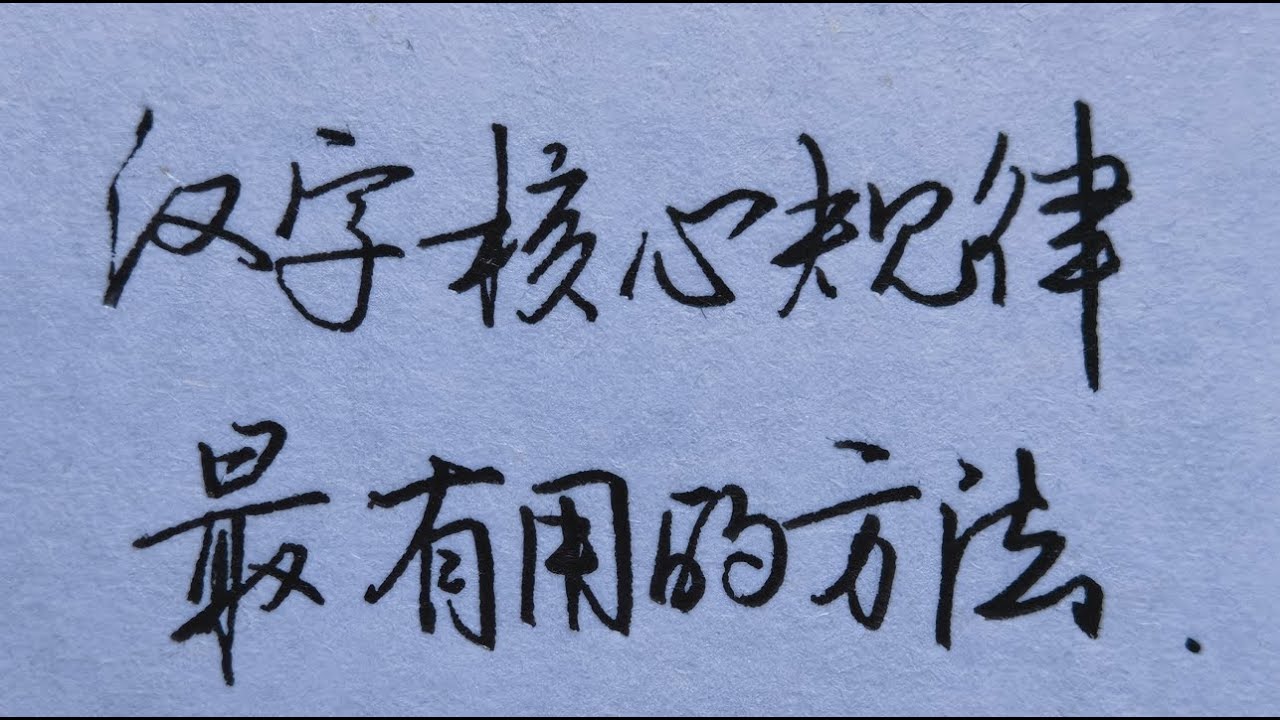 汉字核心规律
最有用的方法.